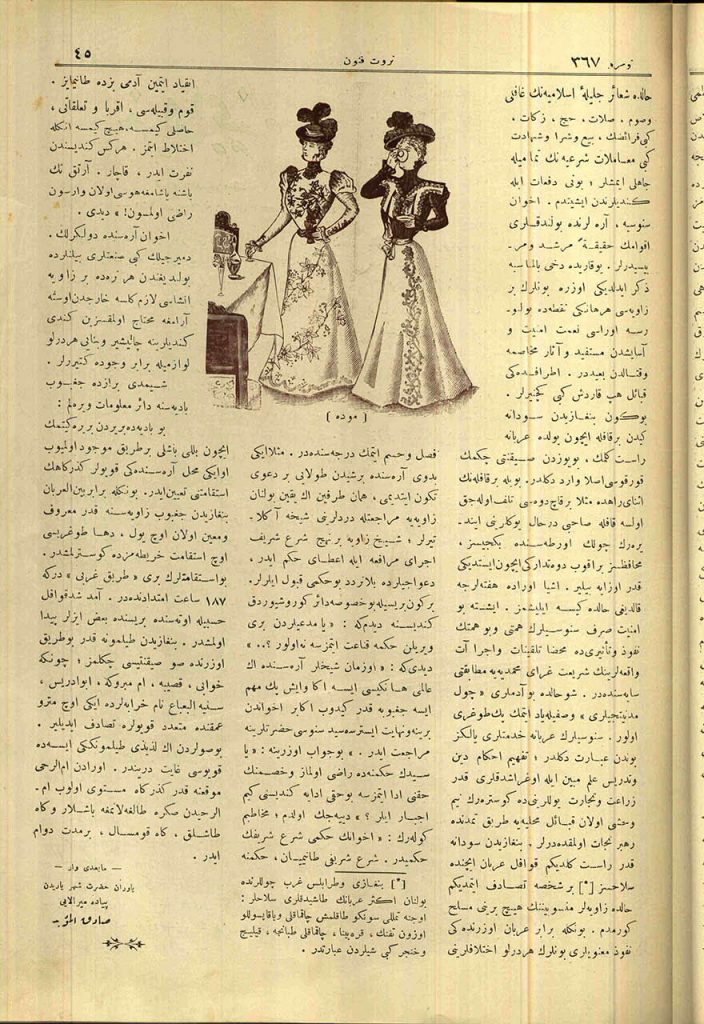 نومرو ٣٦٧
ثروت فنون
٤٥
حالده شعائر جليلهٔ اسلاميه‌نك غافلى
وصوم ، صلات ، حج ، زكات ،
كبى فرائضك ، بيع وشرا وشهادت
كبى معاملات شرعيه نك تماميله
جاهلى ايمشلر ؛ بونى دفعات ايله
كنديلرندن ايشيتدم . اخوان
سنوسيه ، آره لرنده بولندقلرى
اقوامك حقيقةً مرشد ومر‌
بيسيدرلر . بوقاريده دخى بالمناسبه
ذكر ايدلديكى اوزره بونلرك بر
زاويه‌سى هرهانكى نقطه‌ده بولنو‌
رسه اوراسى نعمت امنيت و
آسايشدن مستفيد و آثار مخاصمه
وقتالدن بعيددر . اطرافنده‌كى
قبائل هپ قارداش كبى كچينيرلر .
بوكون بنغازيدن سودانه
كيدن برقافله ايچون يولده عربانه
راست كلمك ، بويوزدن صيقنتى چكمك
قورقوسى اصلا وارد دكلدر . بويله برقافله‌نك
اثناى راهده مثلا برقاچ دوه‌سى تلف اوله‌جق
اولسه قافله صاحبى درحال يوكلرينى ايند‌
يره‌رك چولك اورطه‌سنده بكجيسز ،
محافظسز براقوب دوه تداركى ايچون ايستديكى
قدر اوزاغه كيده بيلير . اشيا اوراده هفته‌لرجه
قالديغى حالده كيمسه ايليشمز . ايشته بو
امنيت صرف سنوسيلرك همتى وبو همتك
نفوذ وتأثيرى ده محضا تلقينات واجرا آت
واقعه‌لرينك شريعت غراى محمديه‌يه مطابقتى
سايه‌سنده‌در . شو حالده بو آدملرى « چول
مدنيتجيلرى » وصفيله ياد ايتمك پك طوغرى
اولور . سنوسيلرك عربانه خدمتلرى يالكز
بوندن عبارت دكلدر ؛ تفهيم احكام دين
وتدريس علم مبين ايله اوغراشدقلرى قدر
زراعت وتجارت يوللرينى ده كوستره‌رك نيم
وحشى اولان قبائل محليه‌يه طريق تمدنده
رهبر نجات اولمقده‌درلر . بنغازيدن سودانه
قدر راست كلديكم قوافل عربان ايچنده
سلاحسز [*] بر شخصه تصادف ايتمديكم
حالده زاويه‌لر منسوبيننك هيچ برينى مسلح
كورمدم . بونكله برابر عربان اوزرنده‌كى
نفوذ معنويلرى بونلرك هردرلو اختلافلرينى
( موده )
فصل وحسم ايتمك درجه‌سنده‌در . مثلا ايكى
بدوى آره‌سنده برشيدن طولايى بر دعوى
تكون ايتديمى ، همان طرفين اك يقين بولنان
زاويه‌يه مراجعتله دردلرينى شيخه آكلا‌
تيرلر ؛ شيخ زاويه بر نهج شرع شريف
اجراى مرافعه ايله اعطاى حكم ايدر ،
دعواجيلرده بلاتردد بوحكمى قبول ايلرلر .
بركون بريسيله بوخصوصه دائر كوروشيوردق
كنديسنه ديدم كه : « يا مدعيلردن برى
ويريلن حكمه قناعت ايتمزسه نه اولور ؟.. »
ديدى كه : « اوزمان شيخلر آره‌سنده اك
عالمى هانكيسى ايسه اكا وايش پك مهم
ايسه جغبوبه قدر كيدوب اكابر اخواندن
برينه ونهايت ايسترسه سيد سنوسى حضرتلرينه
مراجعت ايدر . » بوجواب اوزرينه : « يا
سيدك حكمنه‌ده راضى اولماز وخصمنك
حقنى ادا ايتمزسه بوحقى ادايه كنديسنى كيم
اجبار ايلر ؟ » ديه‌جك اولدم ؛ مخاطبم
كوله‌رك : « اخوانك حكمى شرع شريفك
حكميدر . شرع شريفى طانيميان ، حكمنه
[*] بنغازى وطرابلس غرب چوللرنده
بولنان اكثر عربانك طاشيدقلرى سلاحلر :
اوجنه تمللى سونكو طاقلمش چاقماقلى وياقاپسوللو
اوزون تفنك ، قره‌بينا ، چاقماقلى طبانجه ، قيليج
وخنجر كبى شيلردن عبارتدر .
انقياد ايتمين آدمى بزده طانيمايز .
قوم وقبيله‌سى ، اقربا و تعلقاتى ،
حاصلى كيمسه ، هيچ كيمسه انكله
اختلاط ايتمز . هركس كنديسندن
نفرت ايدر ، قاچار . آرتق تك
باشنه ياشامغه هوسى اولان وارسون
راضى اولمسون! » ديدى .
اخوان آره‌سنده دولكرلك ،
دميرجيلك كبى صنعتلرى بيلنلرده
بولنديغندن هر نره‌ده بر زاويه
انشاسى لازم كلسه خارجدن اوسته
آرامغه محتاج اولمقسزين كندى
كنديلرينه چاليشير وبنايى هردرلو
لوازميله برابر وجوده كتيررلر .
شيمدى برازده جغبوب
باديه‌سنه دائر معلومات ويره‌لم :
بو باديه‌ده بريردن بريره كيتمك
ايچون بللى باشلى برطريق موجود اولميوب
اوايكى محل آره‌سنده‌كى قويولر كذركاهك
استقامتنى تعيين ايدر . بونكله برابر بين العربان
بنغازيدن جغبوب زاويه‌سنه قدر معروف
ومعين اولان اوچ يول ، دها طوغريسى
اوچ استقامت خريطه‌مزده كوسترلمشدر .
بواستقامتلرك برى « طريق غربى » دركه
١٨٧ ساعت امتدادنده‌در . آمد شد قوافل
حسبيله اوته‌سنده بريسنده بعض ايزلر پيدا
اولمشدر . بنغازيدن طيلمونه قدر بوطريق
اوزرنده صو صيقنتيسى چكلمز ؛ چونكه
خوابى ، قصيبه ، ام مبروكه ، ابوادريس ،
سنية البعباع نام خرابه‌لرده ايكى اوچ مترو
عمقنده متعدد قويولره تصادف ايديلير .
بوصولردن اك لذيذى طيلمونكى ايسه‌ده
قويوسى غايت دريندر . اورادن ام‌الرحى
موقعنه قدر كذركاه مستوى اولوب ام .
الرحيدن صكره طالغه‌لانمغه باشلار وكاه
طاشلق ، كاه قومسال ، برمدت دوام
ايدر .
— مابعدى وار —
ياوران حضرت شهريارى‌دن
پياده ميرآلايى
صادق المؤيد